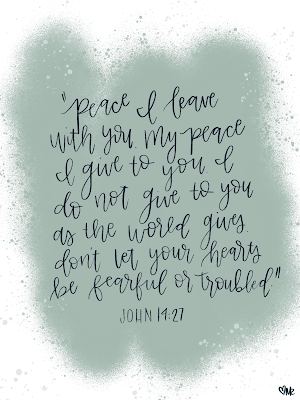 "Peace I leave
with you. My peace
I give to you. I
do not give to you
as the world gives.
don't let your hearts
be fearful or troubled."
JOHN 14:27